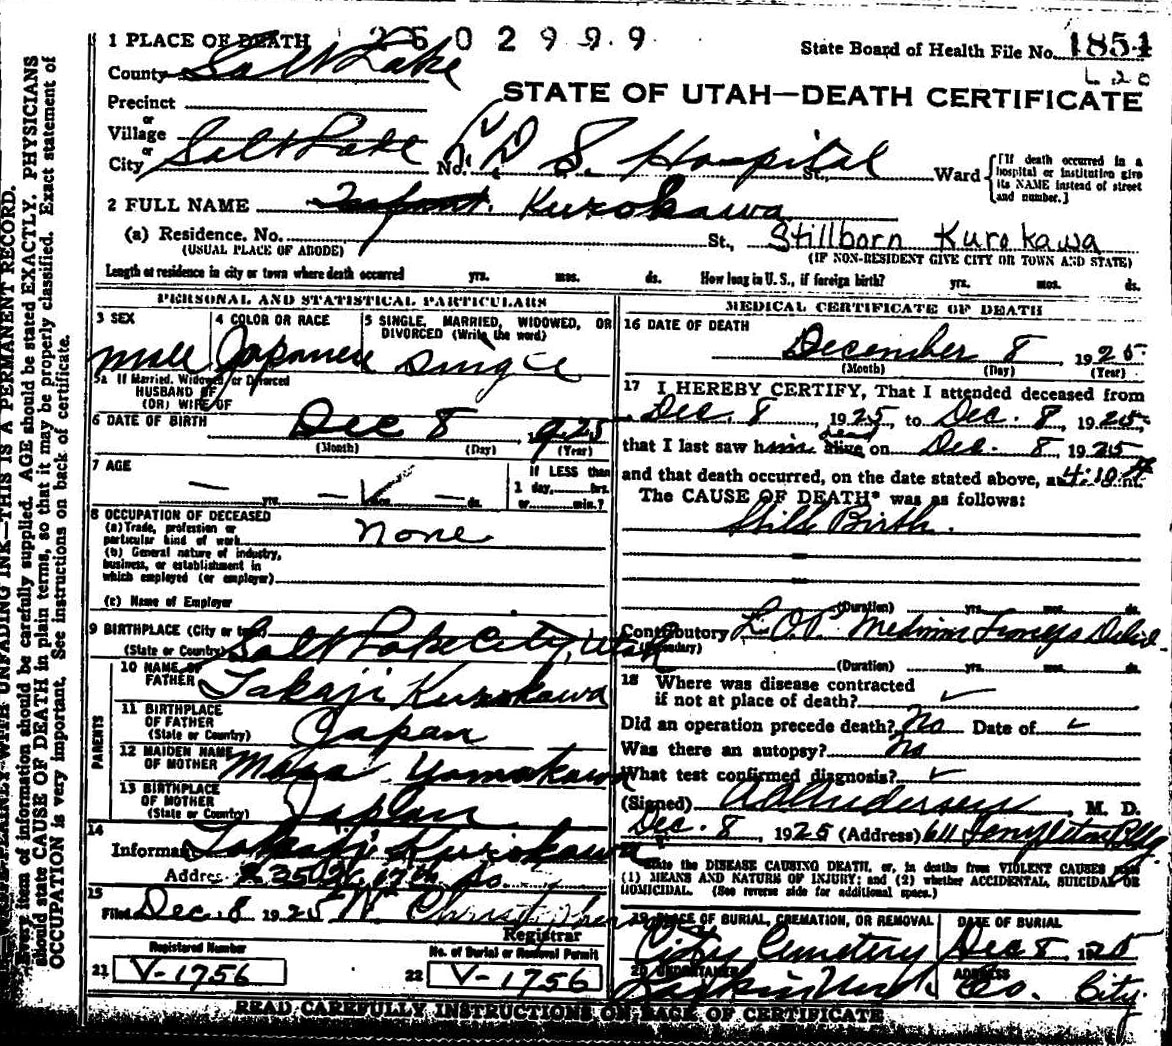 1 PLACE OF DEATH 2502999 State Board of Health File No. 1854
County Salt Lake L 20
STATE OF UTAH—DEATH CERTIFICATE
Precinct
or
Village
or
City Salt Lake No. L. D. S. Hospital St., Ward
[If death occurred in a hospital or institution give its NAME instead of street and number.]
2 FULL NAME Infant Kurokawa
(a) Residence. No. St., Stillborn Kurokawa
(USUAL PLACE OF ABODE) (IF NON-RESIDENT GIVE CITY OR TOWN AND STATE)
Length of residence in city or town where death occurred yrs. mos. ds. How long in U. S., if foreign birth? yrs. mos. ds.
PERSONAL AND STATISTICAL PARTICULARS
3 SEX 4 COLOR OR RACE 5 SINGLE, MARRIED, WIDOWED, OR
DIVORCED (Write the word)
Male Japanese Single
5a If Married, Widowed, or Divorced
HUSBAND OF
(OR) WIFE OF
6 DATE OF BIRTH Dec 8 1925
(Month) (Day) (Year)
7 AGE If LESS than
yrs. mos. ds. 1 day, hrs.
or min.?
8 OCCUPATION OF DECEASED
(a) Trade, profession or
particular kind of work None
(b) General nature of industry,
business, or establishment in
which employed (or employer)
(c) Name of Employer
9 BIRTHPLACE (City or town)
(State or Country) Salt Lake City, Utah
PARENTS
10 NAME OF
FATHER Takaji Kurokawa
11 BIRTHPLACE
OF FATHER
(State or Country) Japan
12 MAIDEN NAME
OF MOTHER Masa Yamakawa
13 BIRTHPLACE
OF MOTHER
(State or Country) Japan
14
Informant Takaji Kurokawa
Address So.
15
Filed Dec. 8 1925
Registrar
Registered Number No. of Burial or Removal Permit
21 V-1756 22 V-1756
MEDICAL CERTIFICATE OF DEATH
16 DATE OF DEATH
December 8 1925
(Month) (Day) (Year)
17 I HEREBY CERTIFY, That I attended deceased from
Dec. 8, 1925 to Dec. 8, 1925
that I last saw him alive dead on Dec. 8 1925
and that death occurred, on the date stated above, at 4:10 m.
The CAUSE OF DEATH* was as follows:
Still Birth.
(Duration) yrs. mos. ds.
Contributory L.O.P.
(Secondary)
(Duration) yrs. mos. ds.
18 Where was disease contracted
if not at place of death?
Did an operation precede death? No Date of
Was there an autopsy? No
What test confirmed diagnosis?
(Signed) Andersen M. D.
Dec. 8, 1925 (Address) 611 Templeton Bldg
*State the DISEASE CAUSING DEATH, or, in deaths from VIOLENT CAUSES state
(1) MEANS AND NATURE OF INJURY; and (2) whether ACCIDENTAL, SUICIDAL OR
HOMICIDAL. (See reverse side for additional space.)
19 PLACE OF BURIAL, CREMATION, OR REMOVAL DATE OF BURIAL
City Cemetery Dec 8 1925
20 UNDERTAKER ADDRESS
Larkin Und. Co. City
READ CAREFULLY INSTRUCTIONS ON BACK OF CERTIFICATE
WRITE PLAINLY WITH UNFADING INK—THIS IS A PERMANENT RECORD.
Every item of information should be carefully supplied. AGE should be stated EXACTLY. PHYSICIANS
should state CAUSE OF DEATH in plain terms, so that it may be properly classified. Exact statement of
OCCUPATION is very important. See instructions on back of certificate.